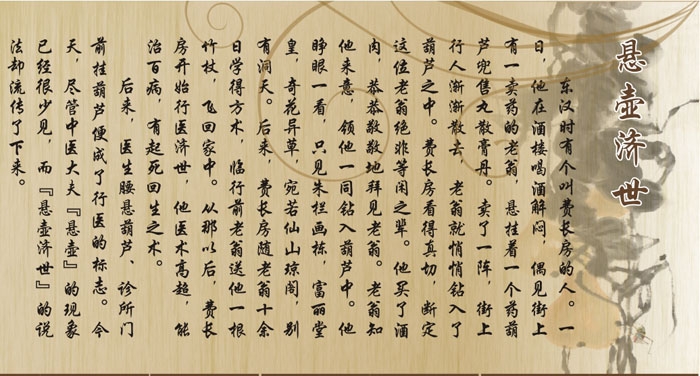 悬壶济世
东汉时有个叫费长房的人。一
日，他在酒楼喝酒解闷，偶见街上
有一卖药的老翁，悬挂着一个药葫
芦兜售丸散膏丹。卖了一阵，街上
行人渐渐散去，老翁就悄悄钻入了
葫芦之中。费长房看得真切，断定
这位老翁绝非等闲之辈。他买了酒
肉，恭恭敬敬地拜见老翁。老翁知
他来意，领他一同钻入葫芦中。他
睁眼一看，只见朱栏画栋，富丽堂
皇，奇花异草，宛若仙山琼阁，别
有洞天。后来，费长房随老翁十余
日学得方术，临行前老翁送他一根
竹杖，飞回家中。从那以后，费长
房开始行医济世，他医术高超，能
治百病，有起死回生之术。
后来，医生腰悬葫芦、诊所门
前挂葫芦便成了行医的标志。今
天，尽管中医大夫『悬壶』的现象
已经很少见，而『悬壶济世』的说
法却流传了下来。